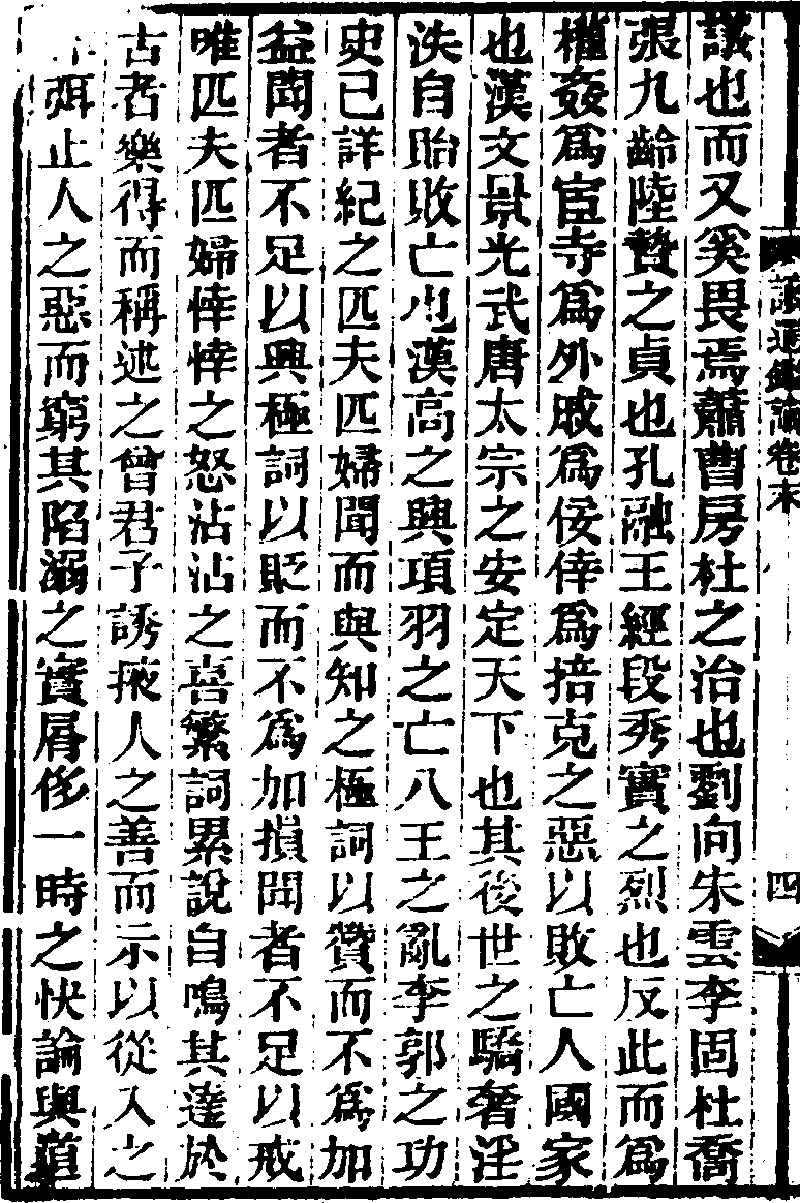 議也而又奚畏焉蕭曹房杜之治也劉向朱雲李固杜喬
張九齡陸贄之貞也孔融王經段秀實之烈也反此而爲
權姦爲宦寺爲外戚爲佞倖爲掊克之惡以敗亡人國家
也漢文景光武唐太宗之安定天下也其後世之驕奢淫
泆自貽敗亡也漢高之興項羽之亡八王之亂李郭之功
史已詳紀之匹夫匹婦聞而與知之極詞以贊而不爲加
益聞者不足以興極詞以貶而不爲加損聞者不足以戒
唯匹夫匹婦悻悻之怒沾沾之喜繁詞累說自鳴其達於
古者樂得而稱述之曾君子誘掖人之善而示以從入之
弭止人之惡而窮其陷溺之實屑侈一時之快論與道
讀通鑑論卷末
四